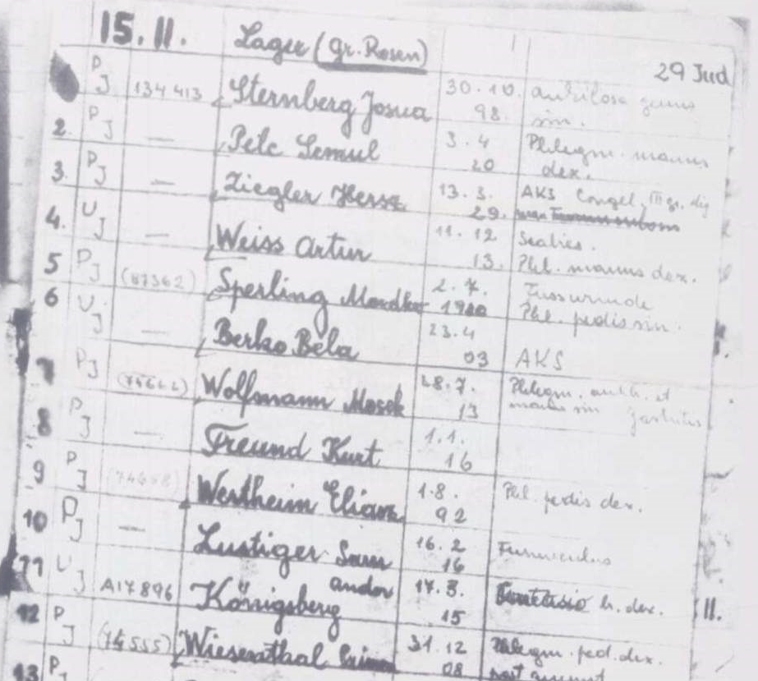 15. II. Lager (Gr. Rosen) 29 Jud
P J 134413 Sternberg Josua 30. 10. 98. sin.
2. P J — Pelc Lemul 3. 4 20 Phlegm. manus dex.
3. P J — Ziegler Hersz 13. 3. 29. AKS Congel. III gr. dig
4. U J — Weiss Artur 11. 12 13. Scabies. Phl. manus dex.
5 P J (87362) Sperling Mordka 2. 7. 1910 Fusswunde Phl. pedis sin.
6 U J — Berko Bela 23. 4 03 AKS
7 P J Wolfmann Mosek 28. 7. 13 Phlegm. antb. et manus sin
8 P J — Freund Kurt 1. 1. 16
9 P J (74658) Wertheim Eliasz 1. 8. 92 Phl. pedis dex.
10 P J — Lustiger Sam 16. 2 16 Furunculus
11 U J A17896 Königsberg andor 17. 3. 15 h. dex. II.
12 P J (74555) Wiesenthal 31. 12 08 Phlegm. ped. dex.
13 P